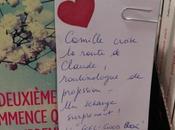 DEUXIÈME
MMENCE Q
Camille croise
la route de
Claude,
routinologue de
profession -
Un échange
surprenant !